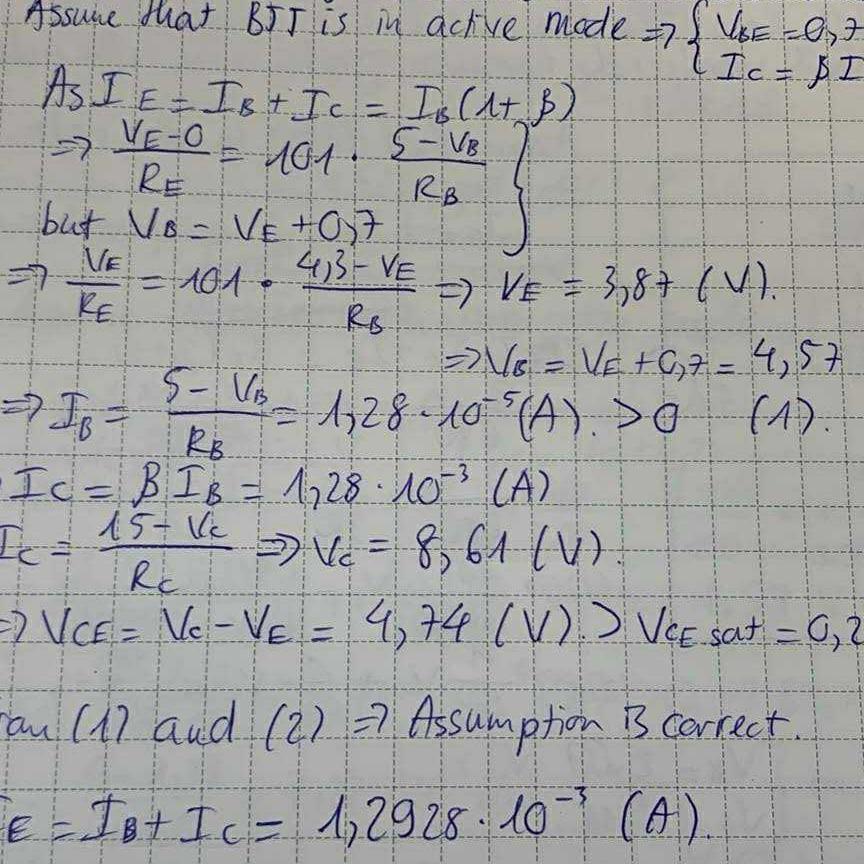 Assume that BJT is in active mode => { VBE = 0,7
IC = β I
As IE = IB + IC = IB (1 + β)
=> (VE - 0)/RE = 101 · (5 - VB)/RB }
but VB = VE + 0,7
=> VE/RE = 101 · (4,3 - VE)/RB => VE = 3,87 (V).
=> VB = VE + 0,7 = 4,57
=> IB = (5 - VB)/RB = 1,28 · 10^-5 (A). > 0 (1).
IC = β IB = 1,28 · 10^-3 (A)
IC = (15 - VC)/RC => VC = 8,61 (V).
=> VCE = VC - VE = 4,74 (V). > VCE sat = 0,2
(1) and (2) => Assumption is correct.
E = IB + IC = 1,2928 · 10^-3 (A).